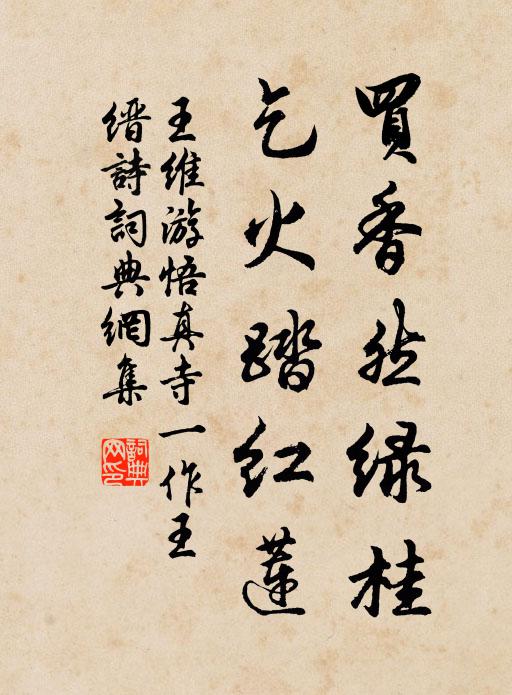 買香然綠桂
乞火踏红蓮
王維游悟真寺一作王
缙詩詞典網集
詞典网印